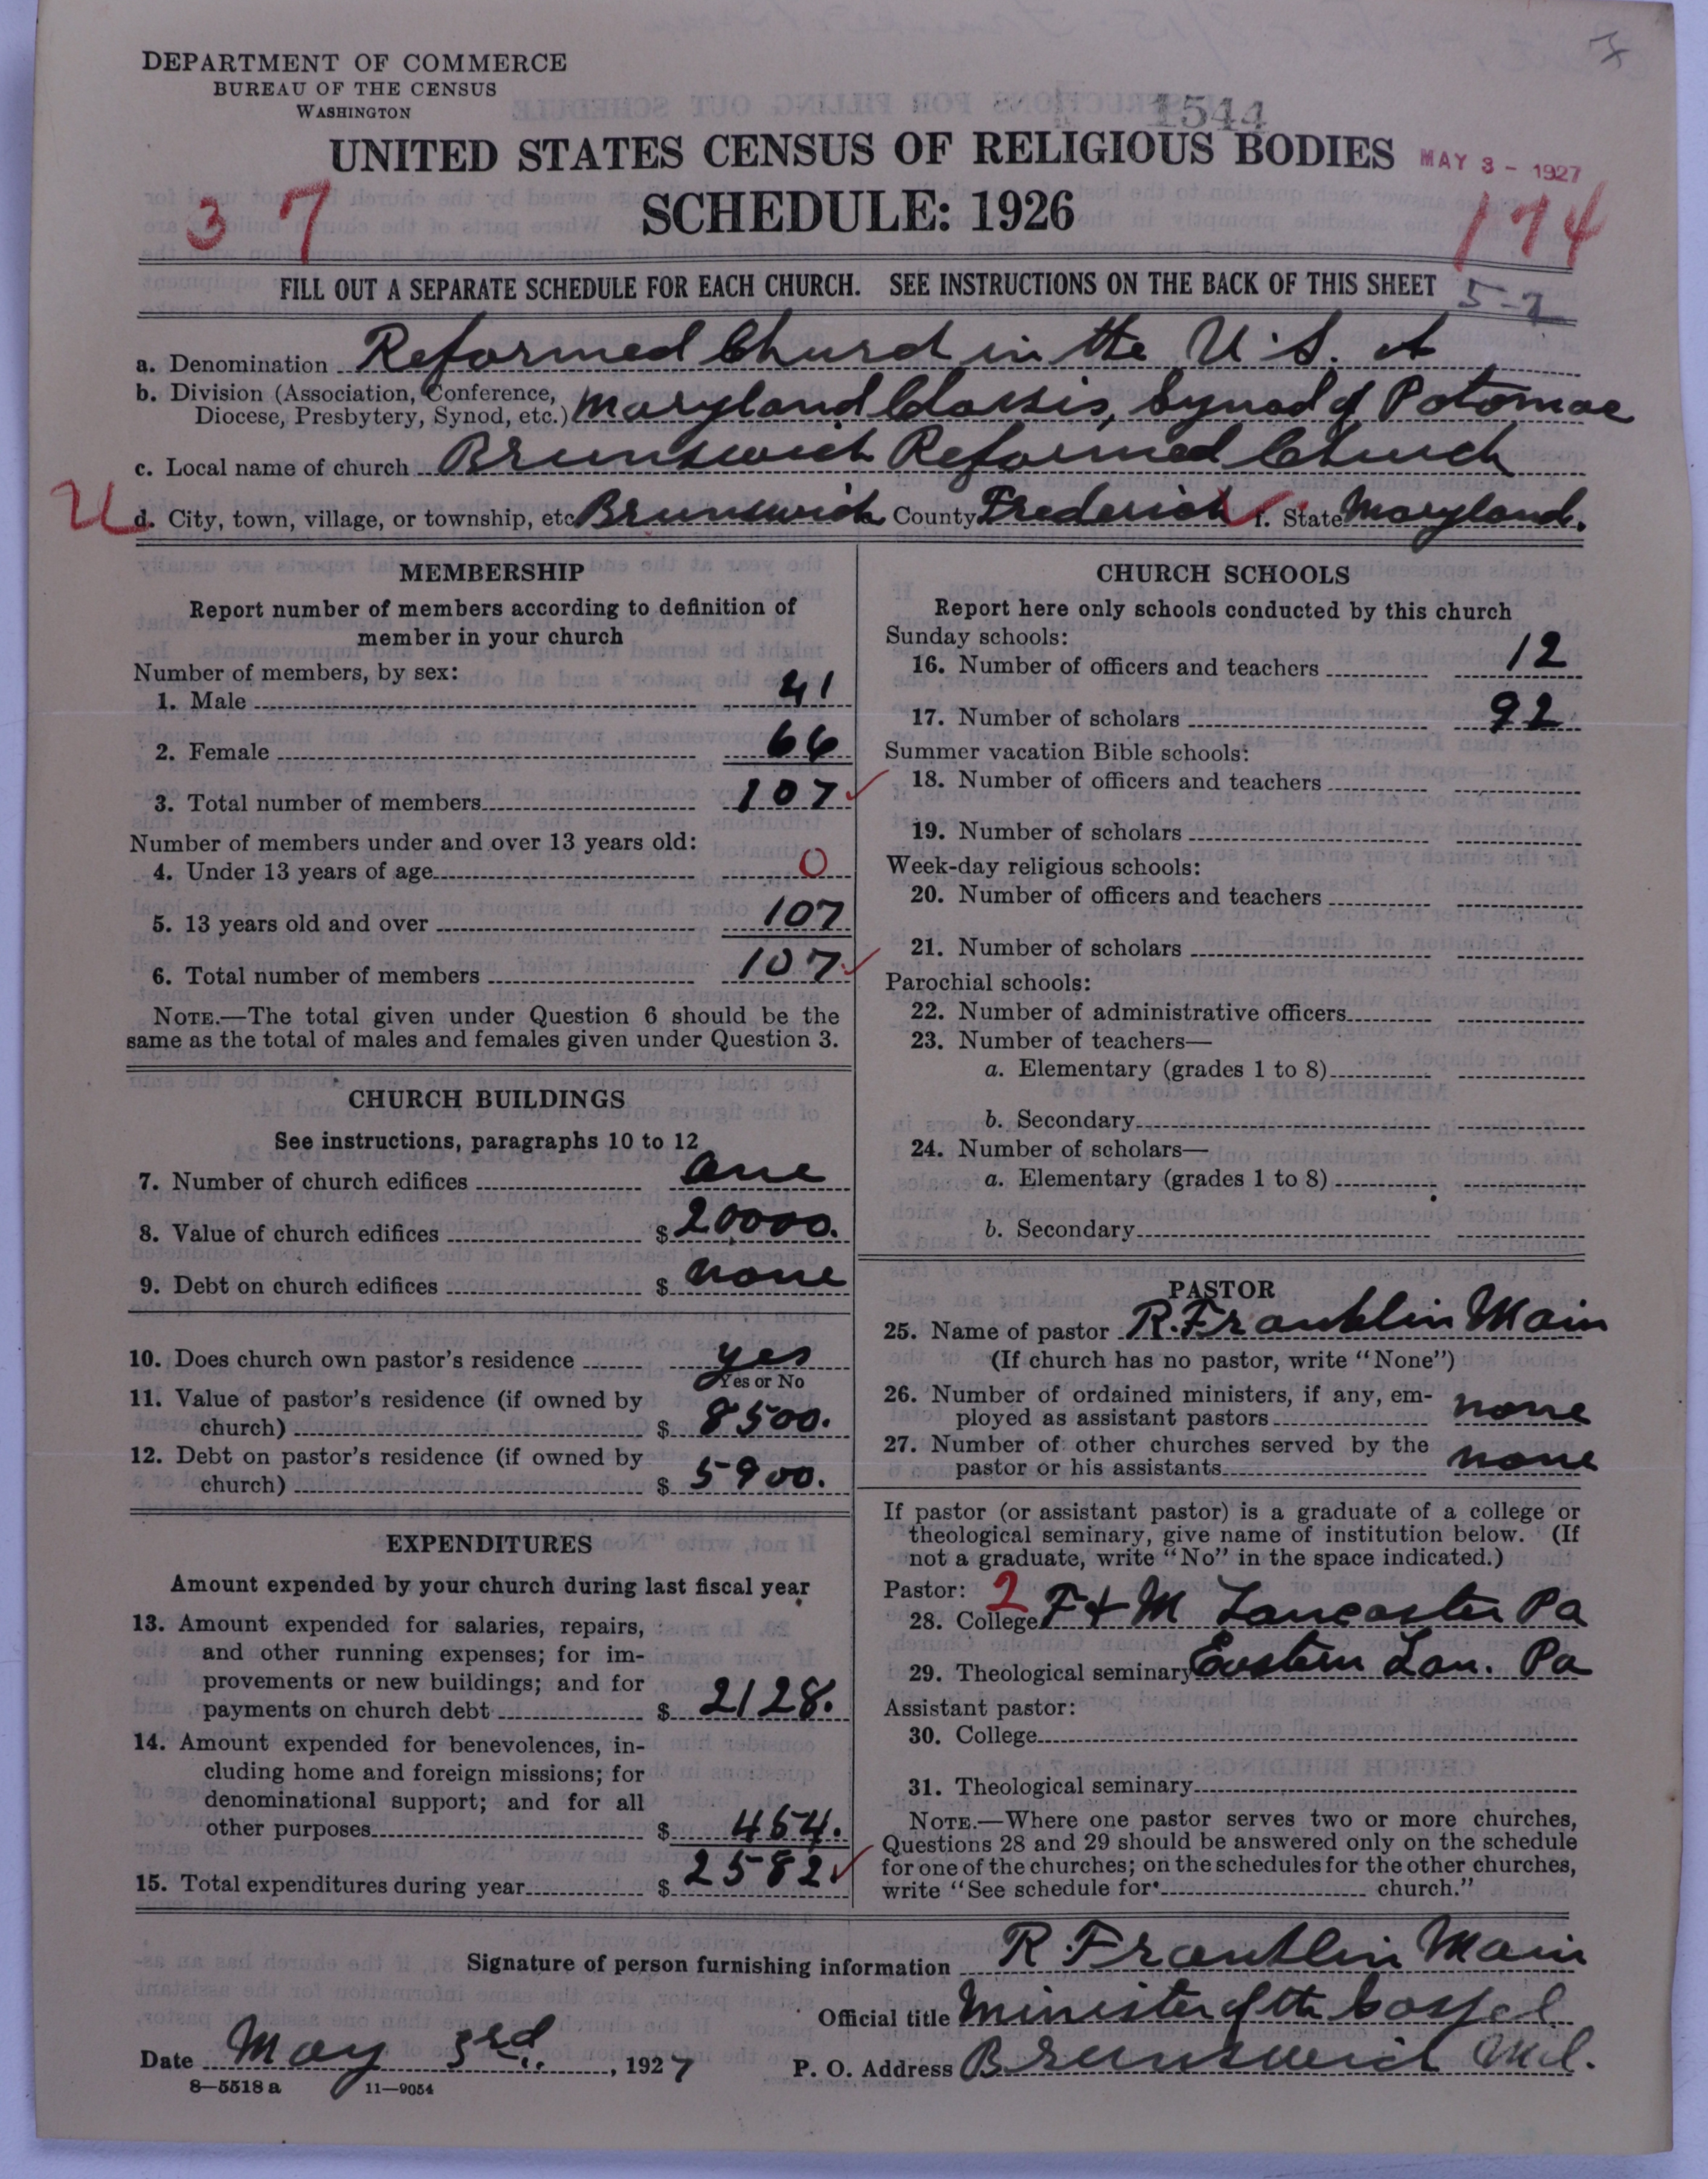 DEPARTMENT OF COMMERCE
BUREAU OF THE CENSUS
WASHINGTON
1544
UNITED STATES CENSUS OF RELIGIOUS BODIES
MAY 3 - 1927
37
SCHEDULE: 1926
174
FILL OUT A SEPARATE SCHEDULE FOR EACH CHURCH. SEE INSTRUCTIONS ON THE BACK OF THIS SHEET
a. Denomination Reformed Church in the U.S. A
b. Division (Association, Conference,
Diocese, Presbytery, Synod, etc.) Maryland Classis, Synod of Potomac
c. Local name of church Brunswick Reformed Church
U d. City, town, village, or township, etc Brunswick County Frederick f. State Maryland.
MEMBERSHIP
Report number of members according to definition of
member in your church
Number of members, by sex:
1. Male 41
2. Female 66
3. Total number of members 107
Number of members under and over 13 years old:
4. Under 13 years of age 0
5. 13 years old and over 107
6. Total number of members 107
NOTE.—The total given under Question 6 should be the
same as the total of males and females given under Question 3.
CHURCH BUILDINGS
See instructions, paragraphs 10 to 12
7. Number of church edifices one
8. Value of church edifices $ 20000.
9. Debt on church edifices $ none
10. Does church own pastor's residence yes
Yes or No
11. Value of pastor's residence (if owned by
church) $ 8500.
12. Debt on pastor's residence (if owned by
church) $ 5900.
EXPENDITURES
Amount expended by your church during last fiscal year
13. Amount expended for salaries, repairs,
and other running expenses; for im-
provements or new buildings; and for
payments on church debt $ 2128.
14. Amount expended for benevolences, in-
cluding home and foreign missions; for
denominational support; and for all
other purposes $ 454.
15. Total expenditures during year $ 2582
CHURCH SCHOOLS
Report here only schools conducted by this church
Sunday schools:
16. Number of officers and teachers 12
17. Number of scholars 92
Summer vacation Bible schools:
18. Number of officers and teachers
19. Number of scholars
Week-day religious schools:
20. Number of officers and teachers
21. Number of scholars
Parochial schools:
22. Number of administrative officers
23. Number of teachers—
a. Elementary (grades 1 to 8)
b. Secondary
24. Number of scholars—
a. Elementary (grades 1 to 8)
b. Secondary
PASTOR
25. Name of pastor R. Franklin Main
(If church has no pastor, write "None")
26. Number of ordained ministers, if any, em-
ployed as assistant pastors none
27. Number of other churches served by the
pastor or his assistants none
If pastor (or assistant pastor) is a graduate of a college or
theological seminary, give name of institution below. (If
not a graduate, write "No" in the space indicated.)
Pastor: 2
28. College F & M Lancaster Pa
29. Theological seminary Eastern Lan. Pa
Assistant pastor:
30. College
31. Theological seminary
NOTE.—Where one pastor serves two or more churches,
Questions 28 and 29 should be answered only on the schedule
for one of the churches; on the schedules for the other churches,
write "See schedule for church."
Signature of person furnishing information R. Franklin Main
Official title Minister of the Gospel
Date May 3rd, 1927 P. O. Address Brunswick Md.
8—5518 a 11—9054